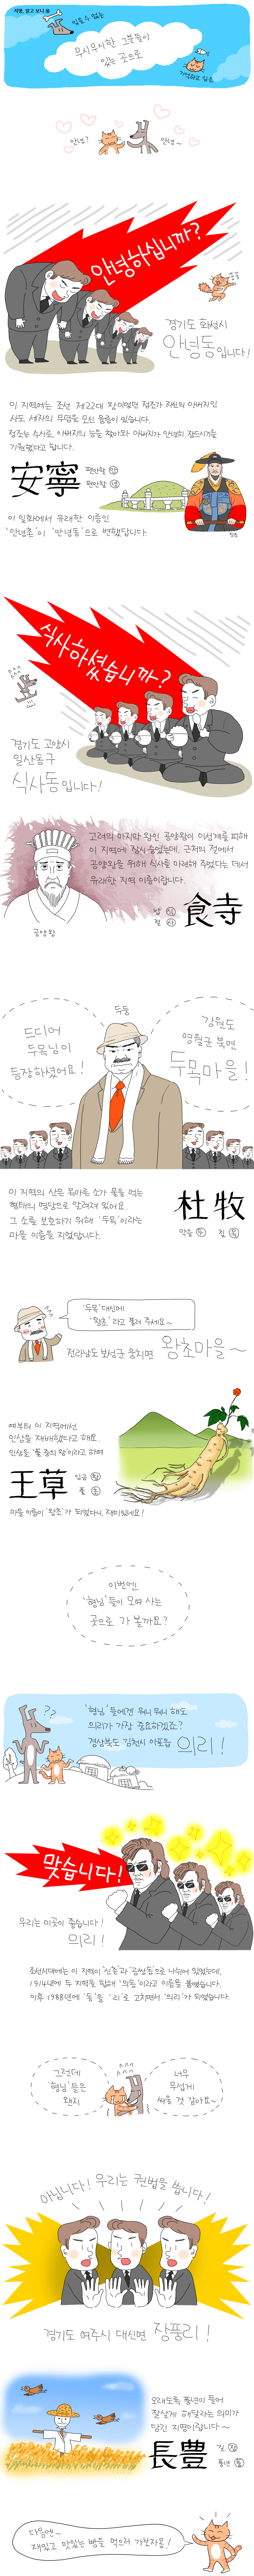 지명, 알고 보니 ㉟
잊을 수 없는
무시무시한 그분들이
있는 곳으로
기억하고 있는
안녕?
안녕~
안녕하십니까?
경기도 화성시
안녕동입니다!
이 지역에는 조선 제22대 왕이었던 정조가 자신의 아버지인
사도 세자의 무덤을 모신 융릉이 있습니다.
정조는 수시로, 아버지의 능을 찾아와 아버지가 안녕히 잠드시기를
기원했다고 합니다.
安寧
편안할 안
편안할 녕
정조
이 일화에서 유래한 이름인
'안녕촌'이 '안녕동'으로 변했답니다.
식사하셨습니까?
경기도 고양시
일산동구
식사동입니다!
고려의 마지막 왕인 공양왕이 이성계를 피해
이 지역에 잠시 숨었는데, 근처의 절에서
공양왕을 위해 식사를 마련해 주었다는 데서
유래한 지역 이름이랍니다.
밥 식
절 사
食寺
공양왕
두둥
드디어
두목님이
등장하셨어요!
강원도
영월군 북면
두목마을!
이 지역의 산은 목마른 소가 물을 먹는
형태의 명당으로 알려져 있어요.
그 소를 보호하기 위해 '두목'이라는
마을 이름을 지었답니다.
杜牧
막을 두
칠 목
'두목' 대신에
'왕초'라고 불러 주세요~
전라남도 보성군 웅치면 왕초마을~
예부터 이 지역에선
인삼을 재배했다고 해요.
인삼을 '풀 중의 왕'이라고 하여
王草
임금 왕
풀 초
마을 이름이 '왕초'가 되었다니, 재미있네요!
이번엔!
'형님'들이 모여 사는
곳으로 가 볼까요?
??
'형님'들에겐 뭐니 뭐니 해도
의리가 가장 중요하겠죠?
경상북도 김천시 아포읍 의리!
맞습니다!
우리는 이곳이 좋습니다!
의리!
조선시대에는 이 지역이 '신촌'과 '공쌍동'으로 나뉘어 있었는데,
1914년에 두 지역을 합해 '의동'이라고 이름을 붙였습니다.
이후 1988년에 '동'을 '리'로 고치면서 '의리'가 되었습니다.
그런데
'형님'들은
왠지
너무
무섭게
싸울 것 같아요~
아닙니다! 우리는 권법을 씁니다!
경기도 여주시 대신면 장풍리!
오래도록 풍년이 들어
잘살게 해달라는 의미가
담긴 지명이랍니다~
長豊
길 장
풍년 풍
다음엔~
재밌고 맛있는 빵을 먹으러 가보자옹!